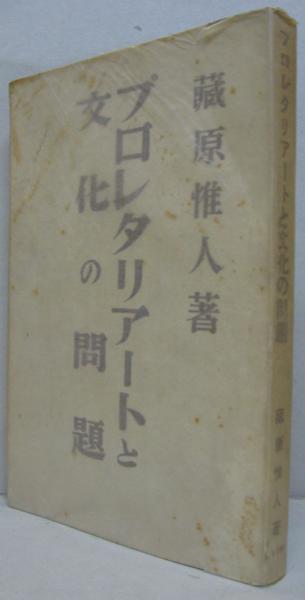 藏原惟人著
プロレタリアートと
文化の問題
プロレタリアートと文化の問題
藏原惟人著